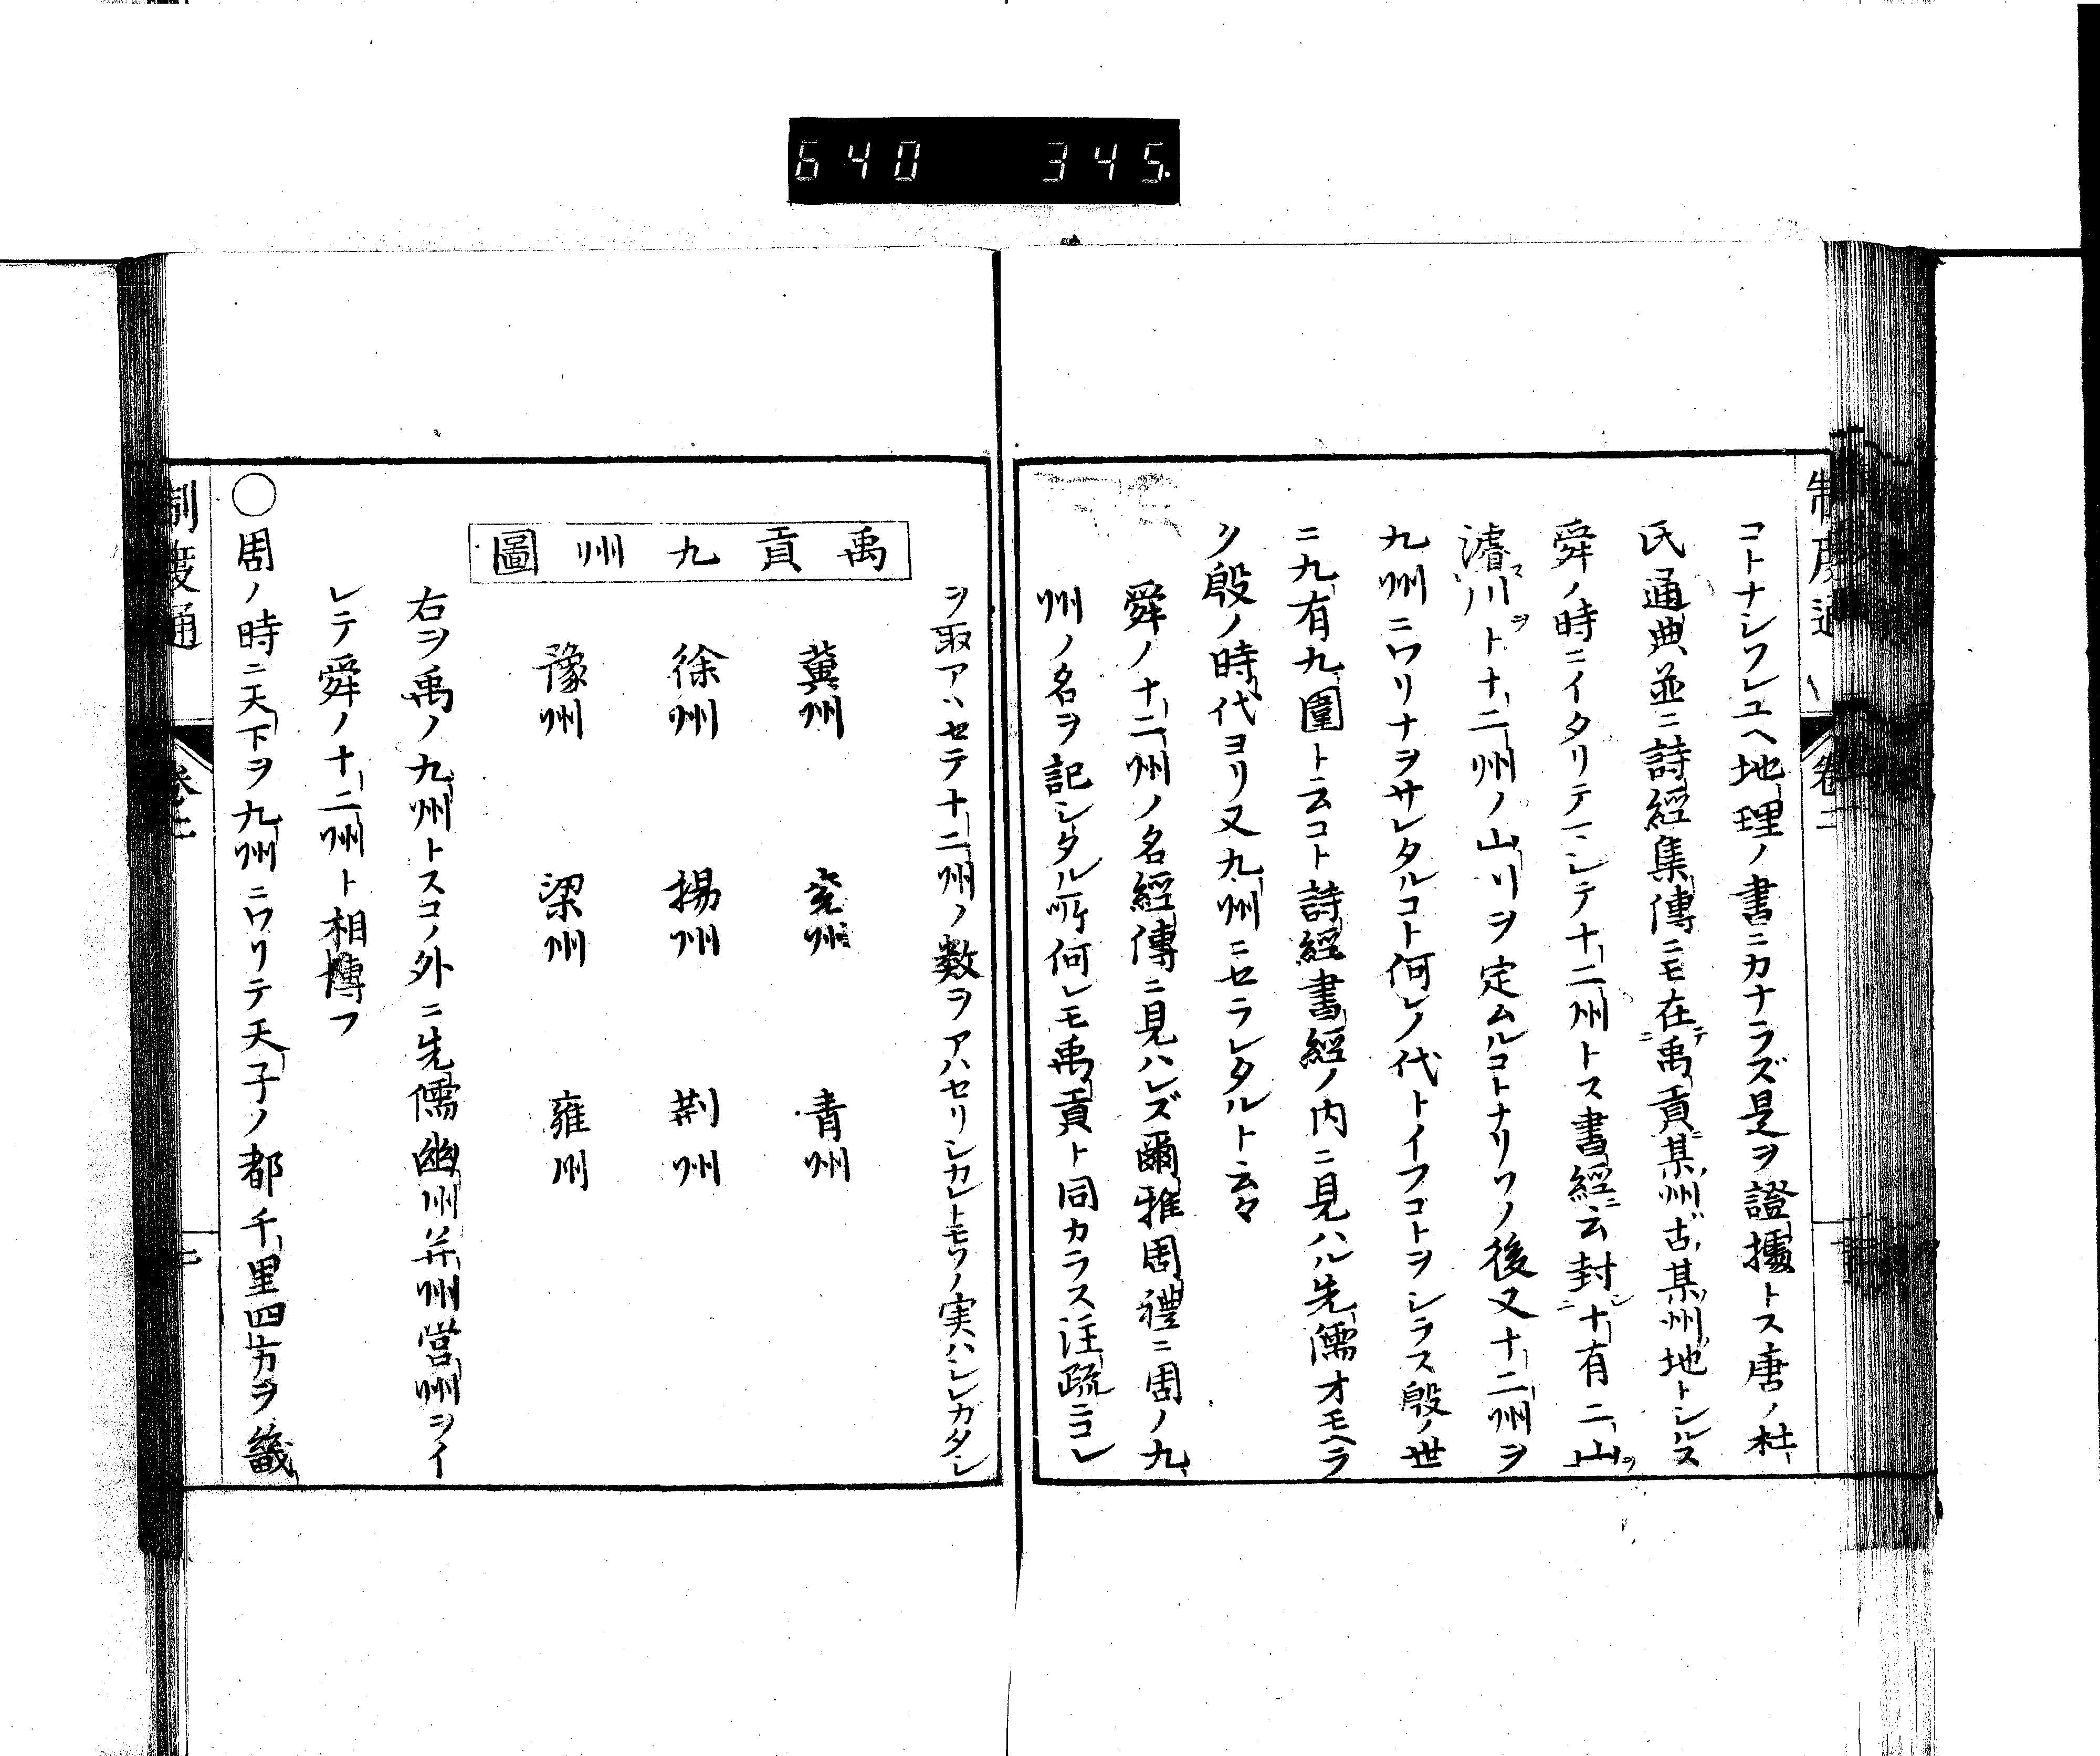 640 345
コトナシソレユヘ地理ノ書ニカナラズ是ヲ證據トス唐ノ杜
氏通典並ニ詩經集傳ニモ在テニ禹貢ニ某州古某州地トシルス
舜ノ時ニイタリテ一シテ十二州トス書經ニ云封シニ十有二山ヲ
濬スソ川ヲト十二州ノ山川ヲ定ムルコトナリソノ後又十二州ヲ
九州ニワリナヲサレタルコト何レノ代トイフコトヲシラス殷ノ世
ニ九有九圍ト云コト詩經書經ノ内ニ見ハル先儒オモヘラ
ク殷ノ時代ヨリ又九州ニセラレタルト云々
舜ノ十二州ノ名經傳ニ見ハレズ爾雅周禮ニ周ノ九
州ノ名ヲ記シタル所何レモ禹貢ト同カラス注疏ニコレ
ヲ取アハセテ十二州ノ数ヲアハセリシカレトモソノ実ハシレガタシ
禹貢九州圖
冀州 兗州 青州
徐州 揚州 荆州
豫州 梁州 雍州
右ヲ禹ノ九州トスコノ外ニ先儒幽州并州営州ヲイ
レテ舜ノ十二州ト相傳フ
○周ノ時ニ天下ヲ九州ニワリテ天子ノ都千里四方ヲ畿
制度通 卷二 七